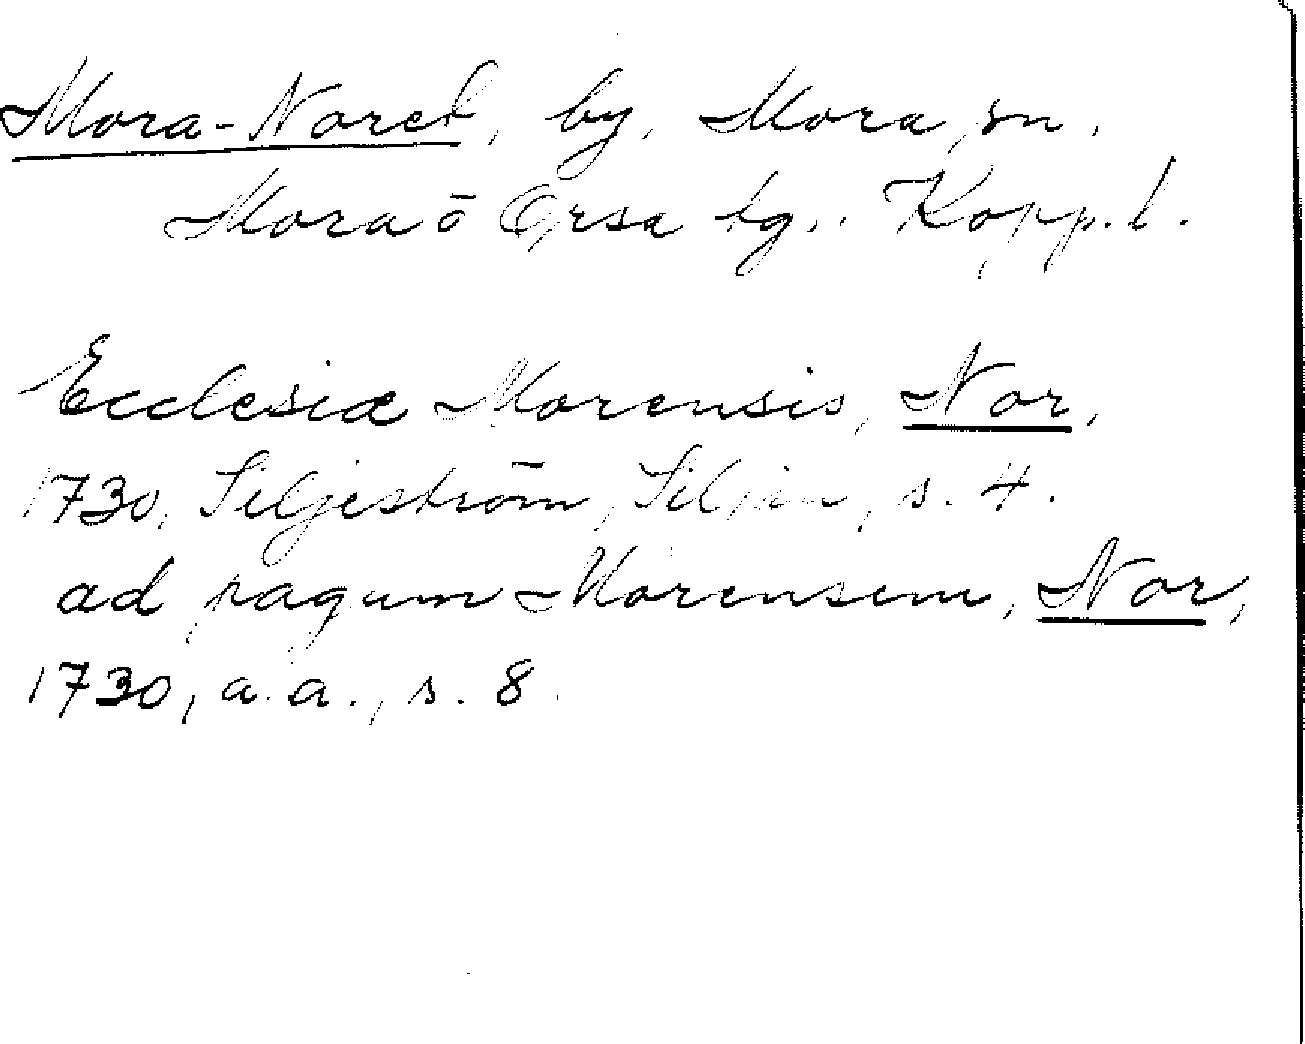 Mora-Noret, by, Mora sn.
Mora o Orsa tg., Kopp. l.
Ecclesiæ Morensis, Nor,
1730, Siljeström, Siljan, s. 4.
ad pagum Morensem, Nor,
1730, a.a., s. 8.